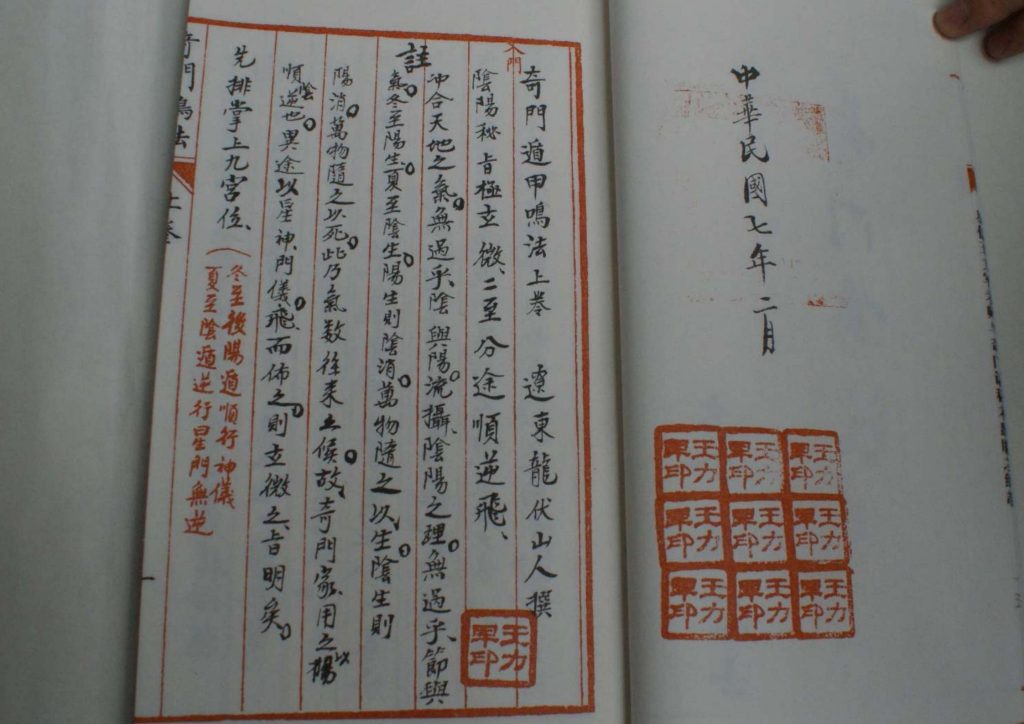 中華民國七年二月
王力軍印
王力軍印
王力軍印
王力軍印
王力軍印
王力軍印
王力軍印
王力軍印
王力軍印
奇門遁甲鳴法上卷 遼東龍伏山人撰
王力軍印
入門
陰陽秘旨極玄微、二至分途順逆飛、
註
冲合天地之氣。無過乎、陰與陽。流攝、陰陽之理。無過乎、節與
氣。冬至陽生。夏至陰生。陽生則陰消。萬物隨之以生。陰生則
陽消。萬物隨之以死。此乃氣数往来之候。故奇門家用之以陽
順陰逆也。異途以星神門儀。飛而佈之。則玄微之旨明矣。
先排掌上九宮位、(冬至後陽遁順行神儀
夏至陰遁逆行星門無逆
奇門鳴法 上卷